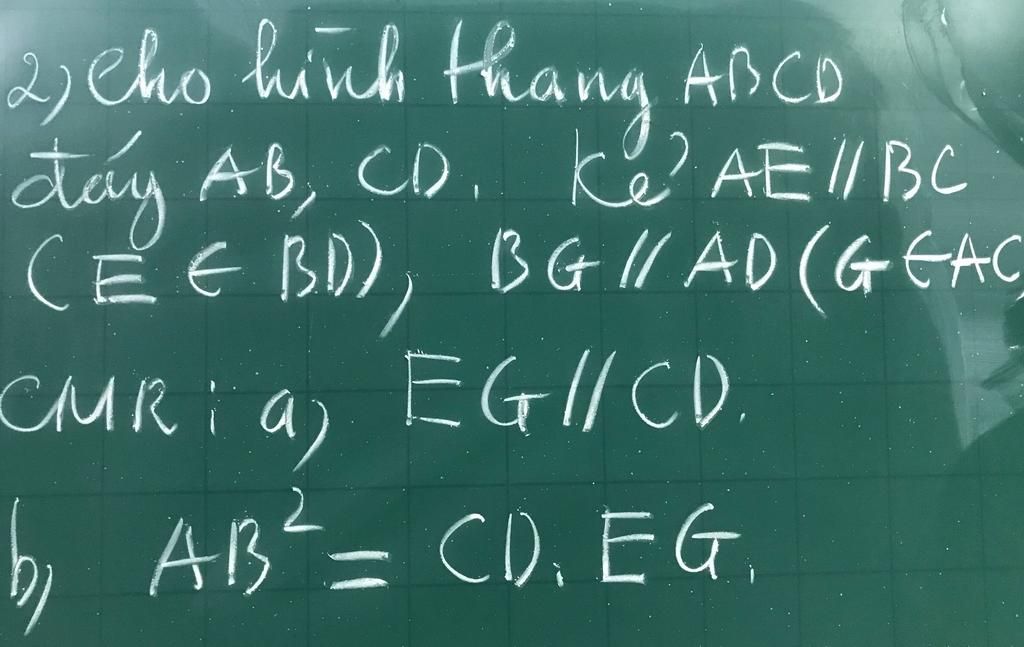 2) Cho hình thang ABCD
đáy AB, CD. Kẻ AE // BC
(E ∈ BD), BG // AD (G ∈ AC)
CMR : a) EG // CD.
b) AB² = CD. EG.